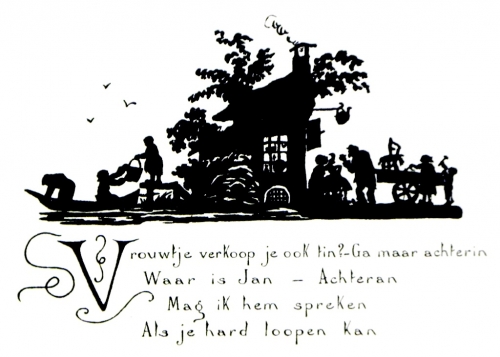 Vrouwtje verkoop je ook tin?-Ga maar achterin
Waar is Jan - Achteran
Mag ik hem spreken
Als je hard loopen kan